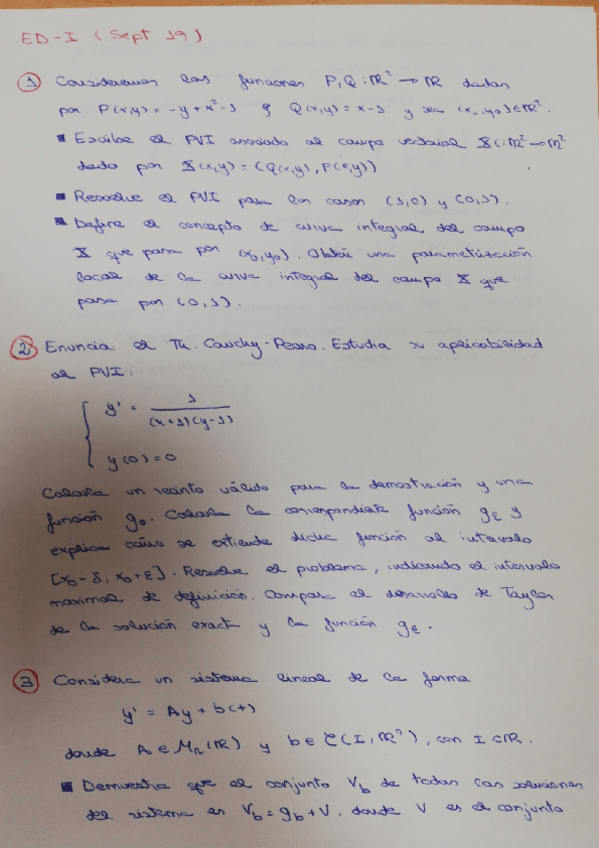 ED-I (Sept 19)
① Consideremos las funciones P,Q : ℝ² → ℝ dadas
por P(x,y) = -y + x² - 1 y Q(x,y) = x - 1 y sea (x₀,y₀) ∈ ℝ².
▪ Escribe el PVI asociado al campo vectorial X : ℝ² → ℝ²
dado por X(x,y) = (Q(x,y), P(x,y))
▪ Resuelve el PVI para los casos (1,0) y (0,1).
▪ Define el concepto de curva integral del campo
X que pasa por (x₀,y₀). Obtén una parametrización
local de la curva integral del campo X que
pasa por (0,1).
② Enuncia el Th. Cauchy-Peano. Estudia su aplicabilidad
al PVI:
y' = 1 / (x+1)(y-1)
y(0) = 0
Calcula un recinto válido para la demostración y una
función g₀. Calcula la correspondiente función gε y
explica cómo se extiende dicha función al intervalo
[x₀-δ, x₀+ε]. Resuelve el problema, indicando el intervalo
maximal de definición. Compara el desarrollo de Taylor
de la solución exacta y la función gε.
③ Considera un sistema lineal de la forma
y' = Ay + b(t)
donde A ∈ Mₙ(ℝ) y b ∈ C(I, ℝⁿ), con I ⊂ ℝ.
▪ Demuestra que el conjunto V_b de todas las soluciones
del sistema es V_b = g_b + V, donde V es el conjunto